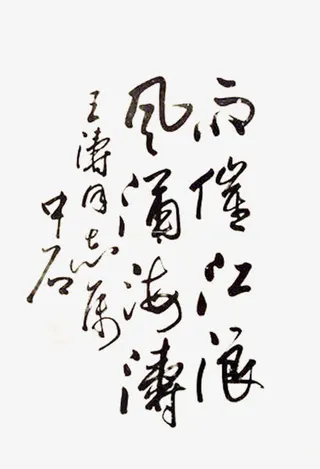 雨催江浪
风海涛
王涛同志属
中石